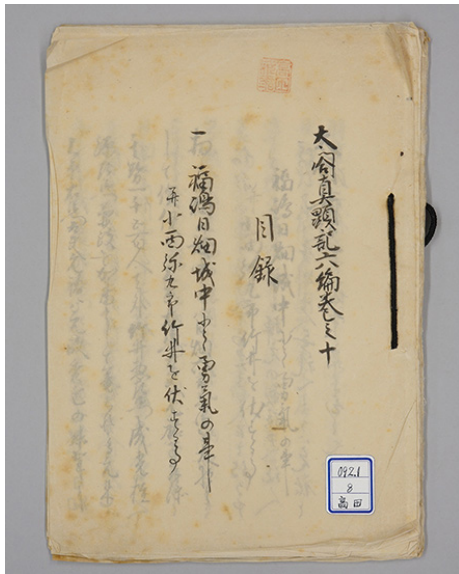 太閤真顕記六編巻之十
目録
一 福嶋日畑城中にて勇気の
并小西弥九郎竹井を伏する
092.1
8
高田